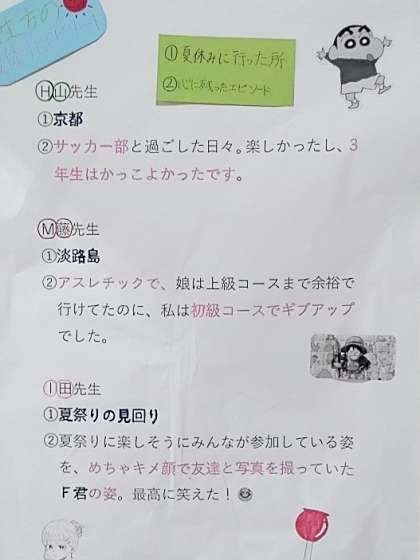 先生方の
①夏休みに行った所
②心に残ったエピソード
H山先生
①京都
②サッカー部と過ごした日々。楽しかったし、3
年生はかっこよかったです。
M藤先生
①淡路島
②アスレチックで、娘は上級コースまで余裕で
行けてたのに、私は初級コースでギブアップ
でした。
I田先生
①夏祭りの見回り
②夏祭りに楽しそうにみんなが参加している姿
を、めちゃキメ顔で友達と写真を撮っていた
F君の姿。最高に笑えた!